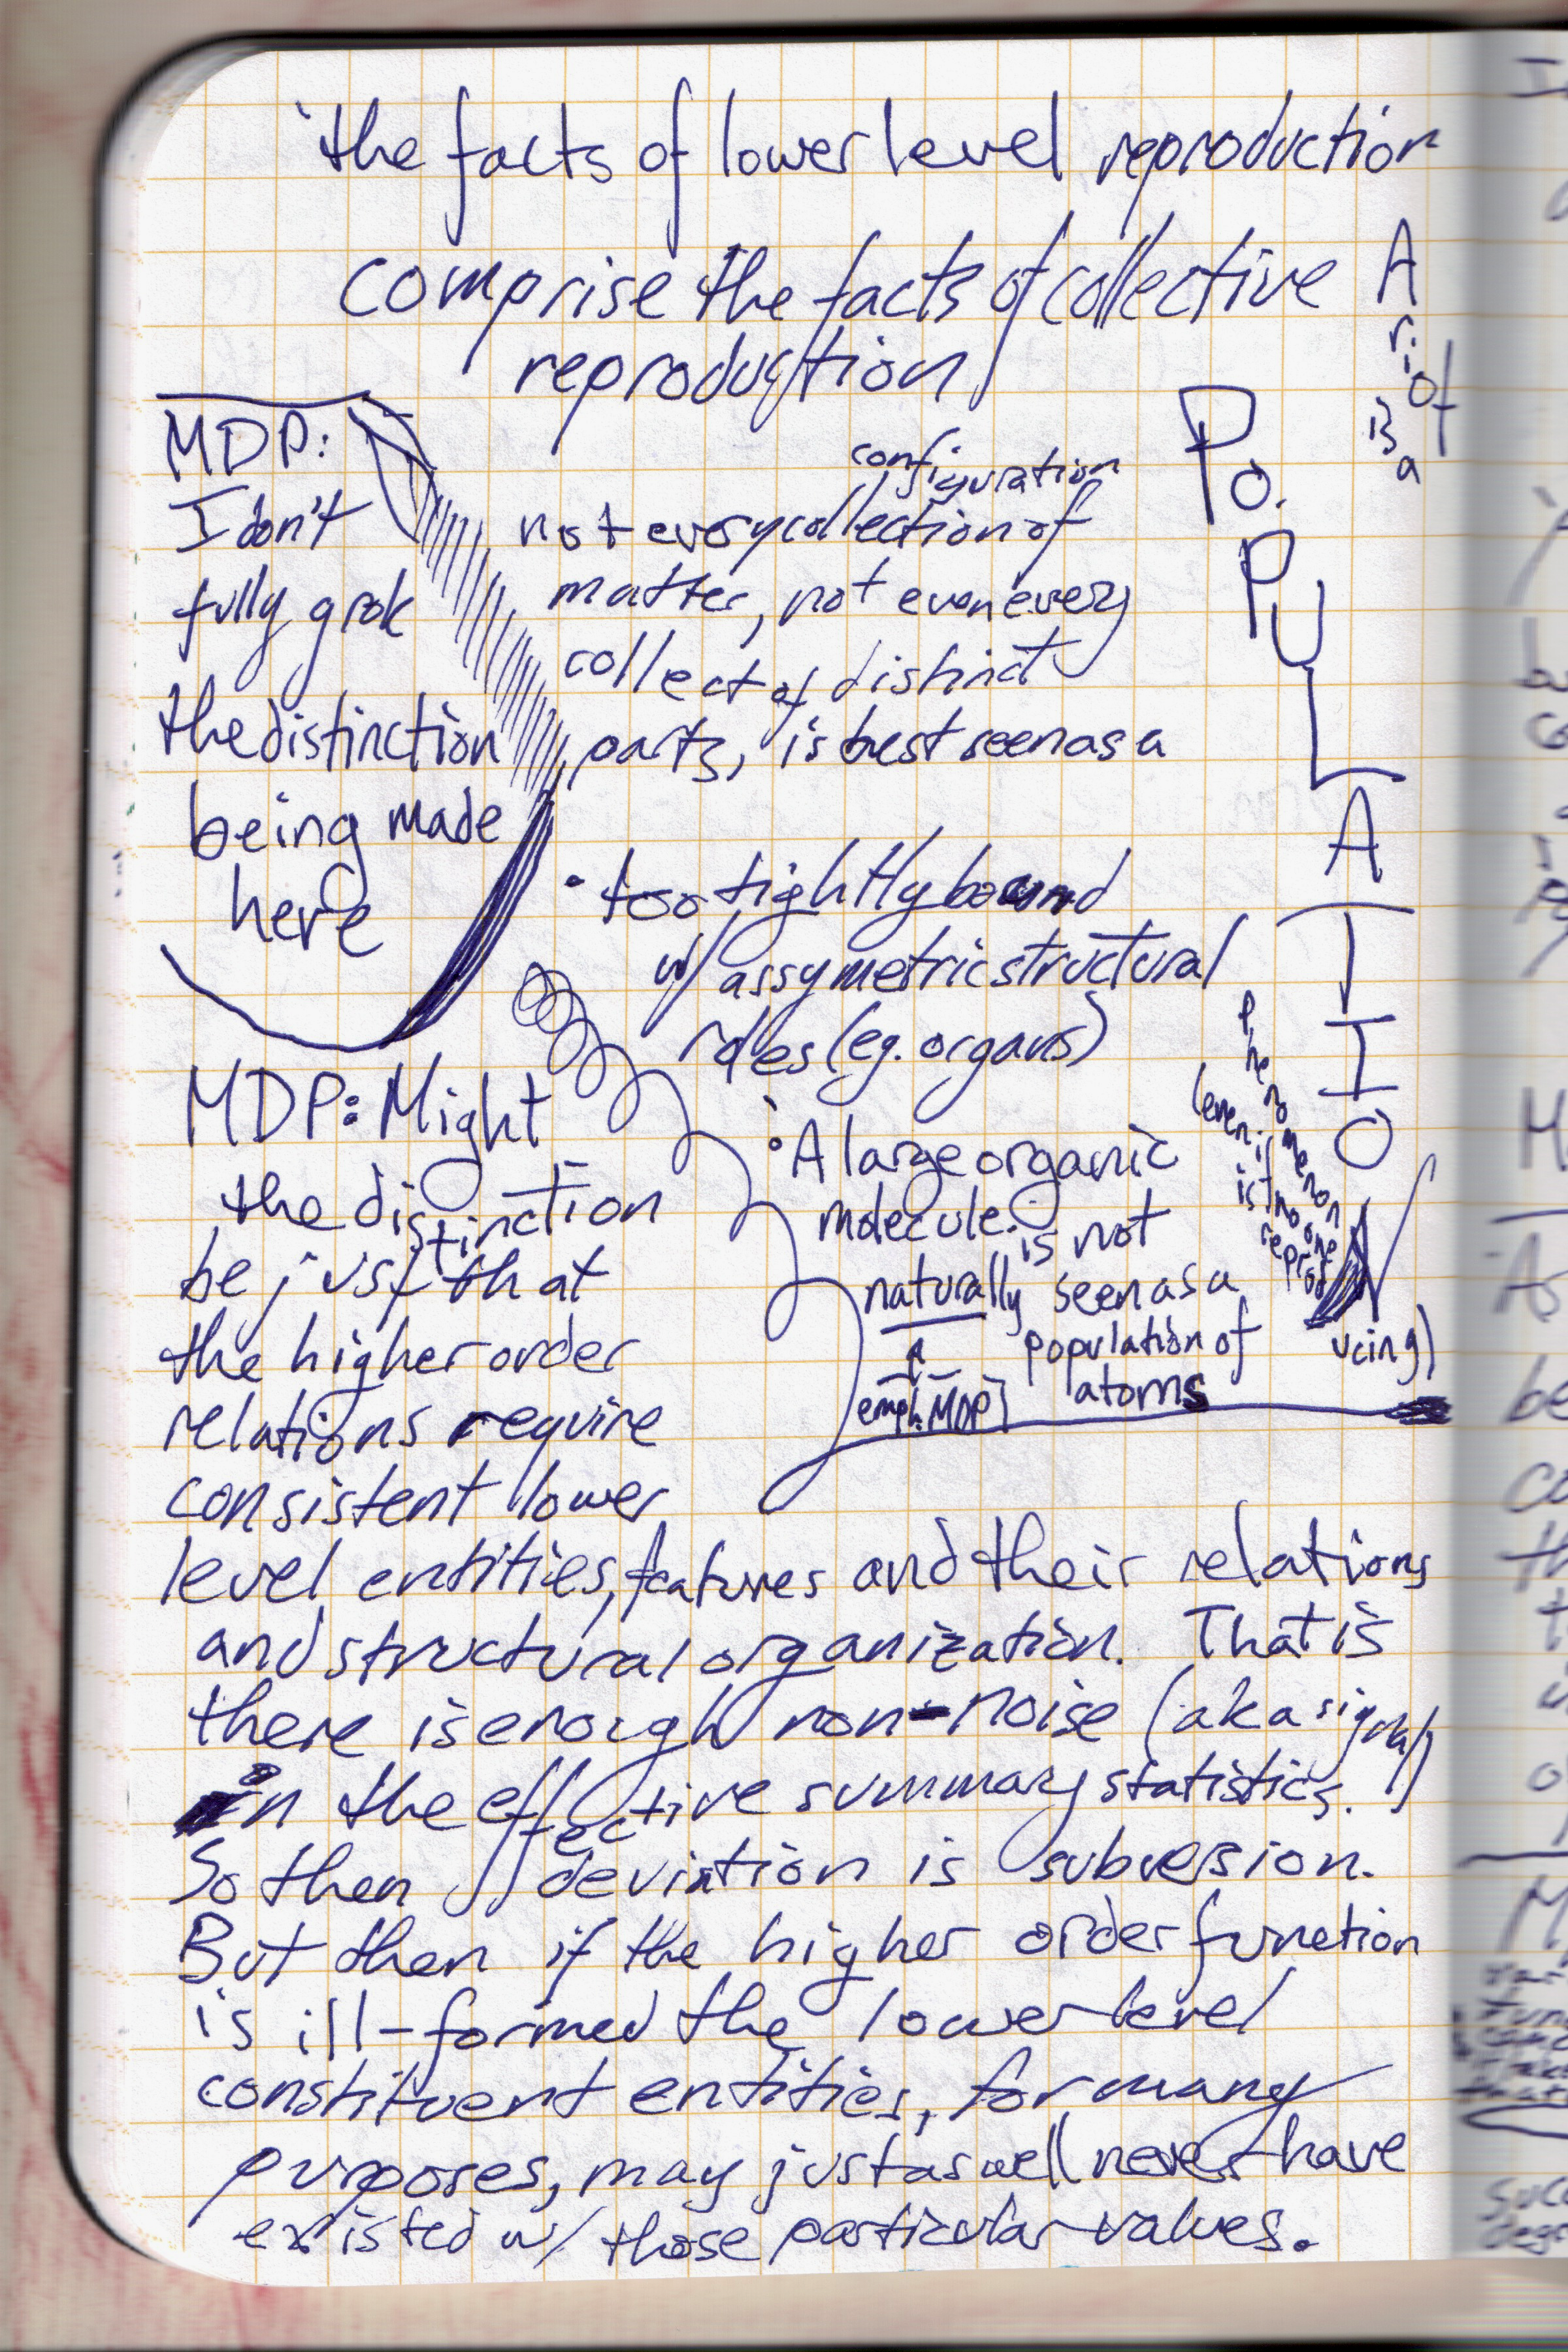 'the facts of lower level reproduction
comprise the facts of collective
reproduction
MDP:
I don't
fully grok
the distinction
being made
here
configuration
not every collection of
matter, not even every
collect of distinct
parts, is best seen as a
POPULATION
A
riot
is
a
phenomenon
(even if
is no one
reprod
ucing)
• too tightly bound
w/ assymetric structural
roles (eg. organs)
• A large organic
molecule is not
naturally seen as a
population of
atoms
emph. MDP]
MDP: Might
the distinction
be just that
the higher order
relations require
consistent lower
level entities, features and their relations
and structural organization. That is
there is enough non-noise (aka signal)
in the effective summary statistics.
So then deviation is subversion.
But then if the higher order function
is ill-formed the lower level
constituent entities, for many
purposes, may just as well never have
existed w/ those particular values.